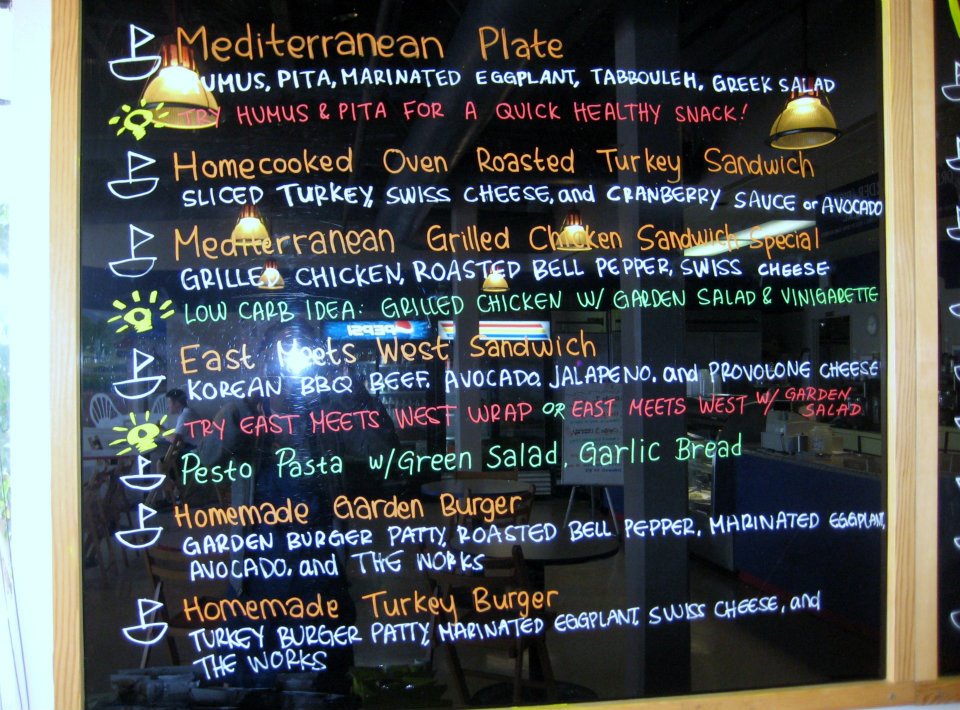 Mediterranean Plate
HUMUS, PITA, MARINATED EGGPLANT, TABBOULEH, GREEK SALAD
TRY HUMUS & PITA FOR A QUICK HEALTHY SNACK!
Homecooked Oven Roasted Turkey Sandwich
SLICED TURKEY, SWISS CHEESE, and CRANBERRY SAUCE or AVOCADO
Mediterranean Grilled Chicken Sandwich Special
GRILLED CHICKEN, ROASTED BELL PEPPER, SWISS CHEESE
LOW CARB IDEA: GRILLED CHICKEN W/ GARDEN SALAD & VINIGARETTE
PEPSI
East Meets West Sandwich
KOREAN BBQ BEEF, AVOCADO, JALAPENO, and PROVOLONE CHEESE
TRY EAST MEETS WEST WRAP OR EAST MEETS WEST W/ GARDEN SALAD
Pesto Pasta w/Green Salad, Garlic Bread
Homemade Garden Burger
GARDEN BURGER PATTY, ROASTED BELL PEPPER, MARINATED EGGPLANT,
AVOCADO, and THE WORKS
Homemade Turkey Burger
TURKEY BURGER PATTY, MARINATED EGGPLANT, SWISS CHEESE, and
THE WORKS